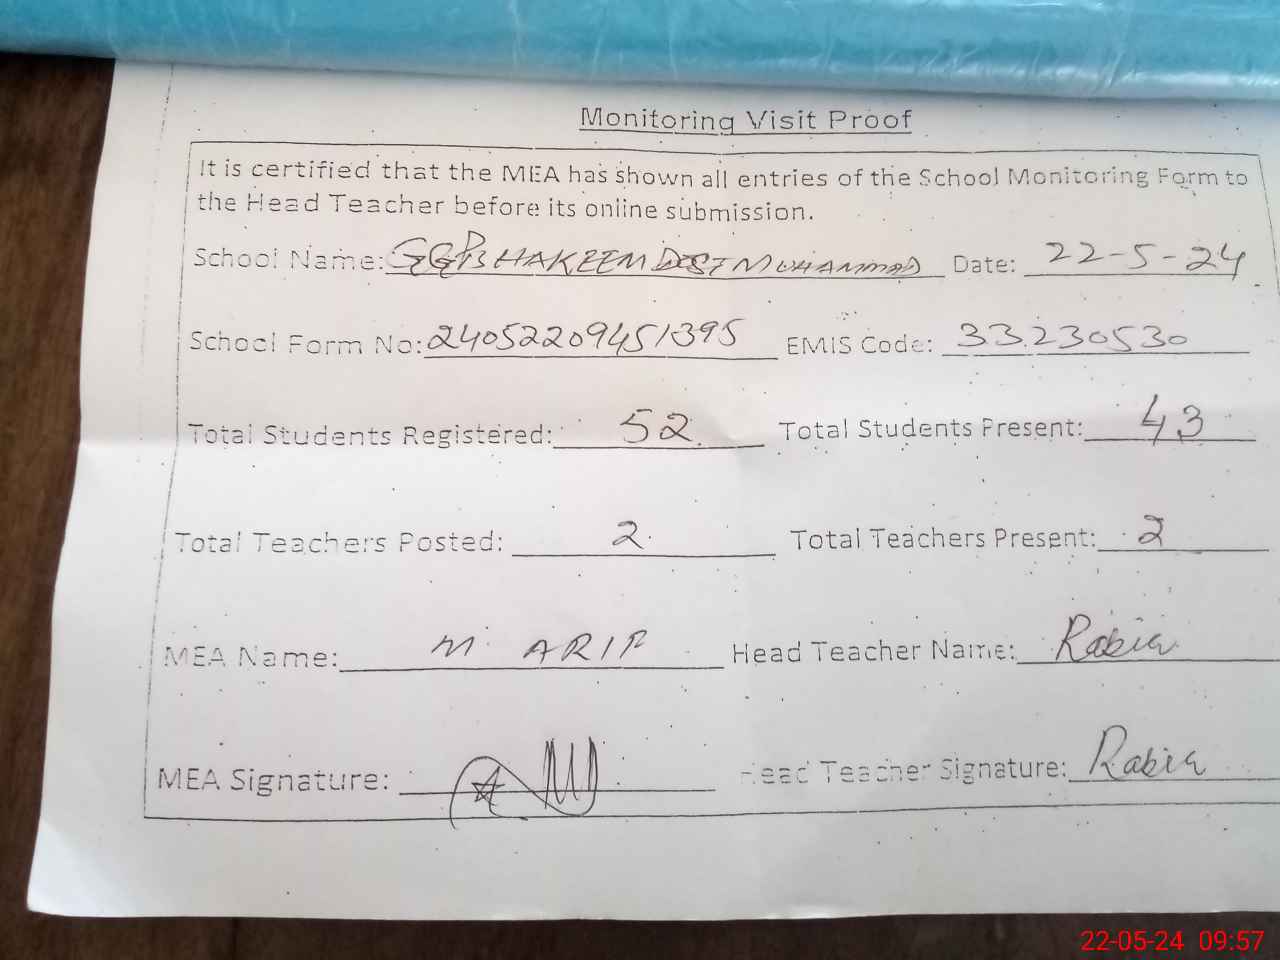 Monitoring Visit Proof
It is certified that the MEA has shown all entries of the School Monitoring Form to
the Head Teacher before its online submission.
School Name: GGPS HAKEEM DOST MUHAMMAD Date: 22-5-24
School Form No: 24052209451395 EMIS Code: 33230530
Total Students Registered: 52 Total Students Present: 43
Total Teachers Posted: 2 Total Teachers Present: 2
MEA Name: M. ARIF Head Teacher Name: Rabia
MEA Signature: Head Teacher Signature: Rabia
22-05-24 09:57